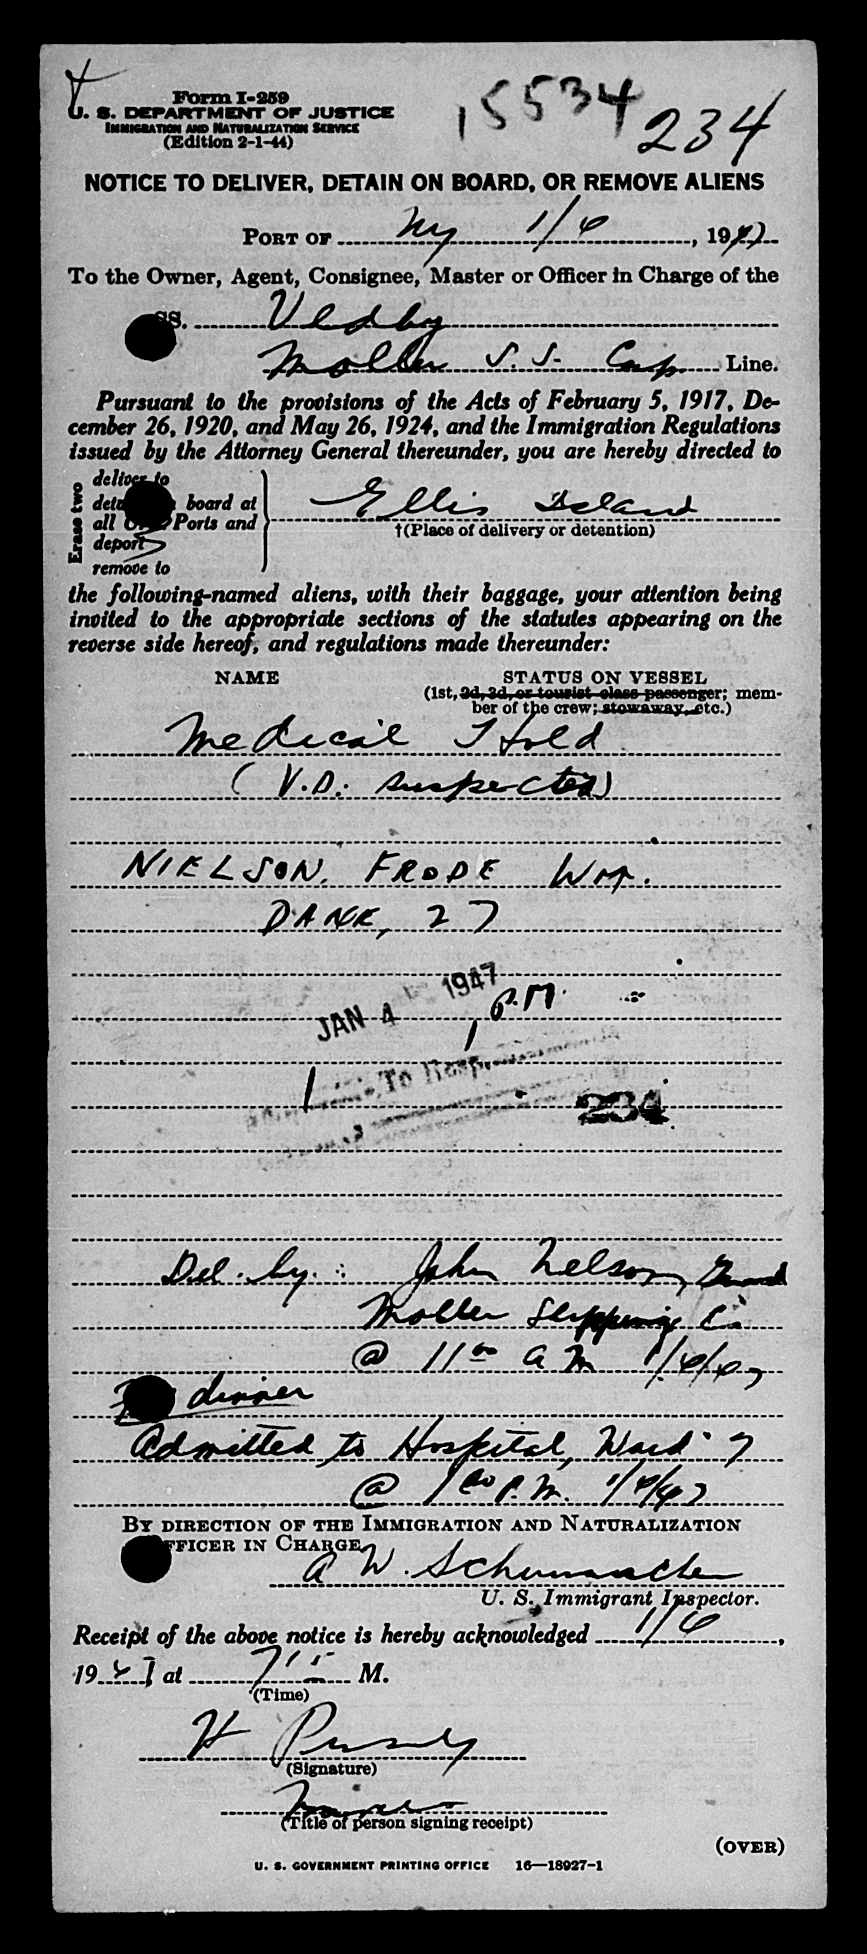 Form I-259
U. S. DEPARTMENT OF JUSTICE
IMMIGRATION AND NATURALIZATION SERVICE
(Edition 2-1-44)
15534
234
NOTICE TO DELIVER, DETAIN ON BOARD, OR REMOVE ALIENS
PORT OF NY 1/6, 1947
To the Owner, Agent, Consignee, Master or Officer in Charge of the
SS. Vedby
Moller S.S. Corp Line.
Pursuant to the provisions of the Acts of February 5, 1917, De-
cember 26, 1920, and May 26, 1924, and the Immigration Regulations
issued by the Attorney General thereunder, you are hereby directed to
Erase two
deliver to
board at
all Ports and
deport
remove to
Ellis Island
†(Place of delivery or detention)
the following-named aliens, with their baggage, your attention being
invited to the appropriate sections of the statutes appearing on the
reverse side hereof, and regulations made thereunder:
NAME STATUS ON VESSEL
(1st, 2d, 3d, or tourist class passenger; mem-
ber of the crew; stowaway, etc.)
Medical Hold
(V.D. suspected)
NIELSON, FRODE
DANE, 27
JAN 4 1947
1 P.M.
To Hosp
234
Del. by: John Nelson, Guard
Moller Shipping Co
@ 11 00 A M 1/6/47
dinner
Admitted to Hospital, Ward 7
@ 1 00 P.M. 1/6/47
BY DIRECTION OF THE IMMIGRATION AND NATURALIZATION
OFFICER IN CHARGE
A W. Schumacher
U. S. Immigrant Inspector.
Receipt of the above notice is hereby acknowledged 1/6,
1947 at 715 M.
(Time)
H
(Signature)
(Title of person signing receipt)
(OVER)
U. S. GOVERNMENT PRINTING OFFICE 16—18927-1